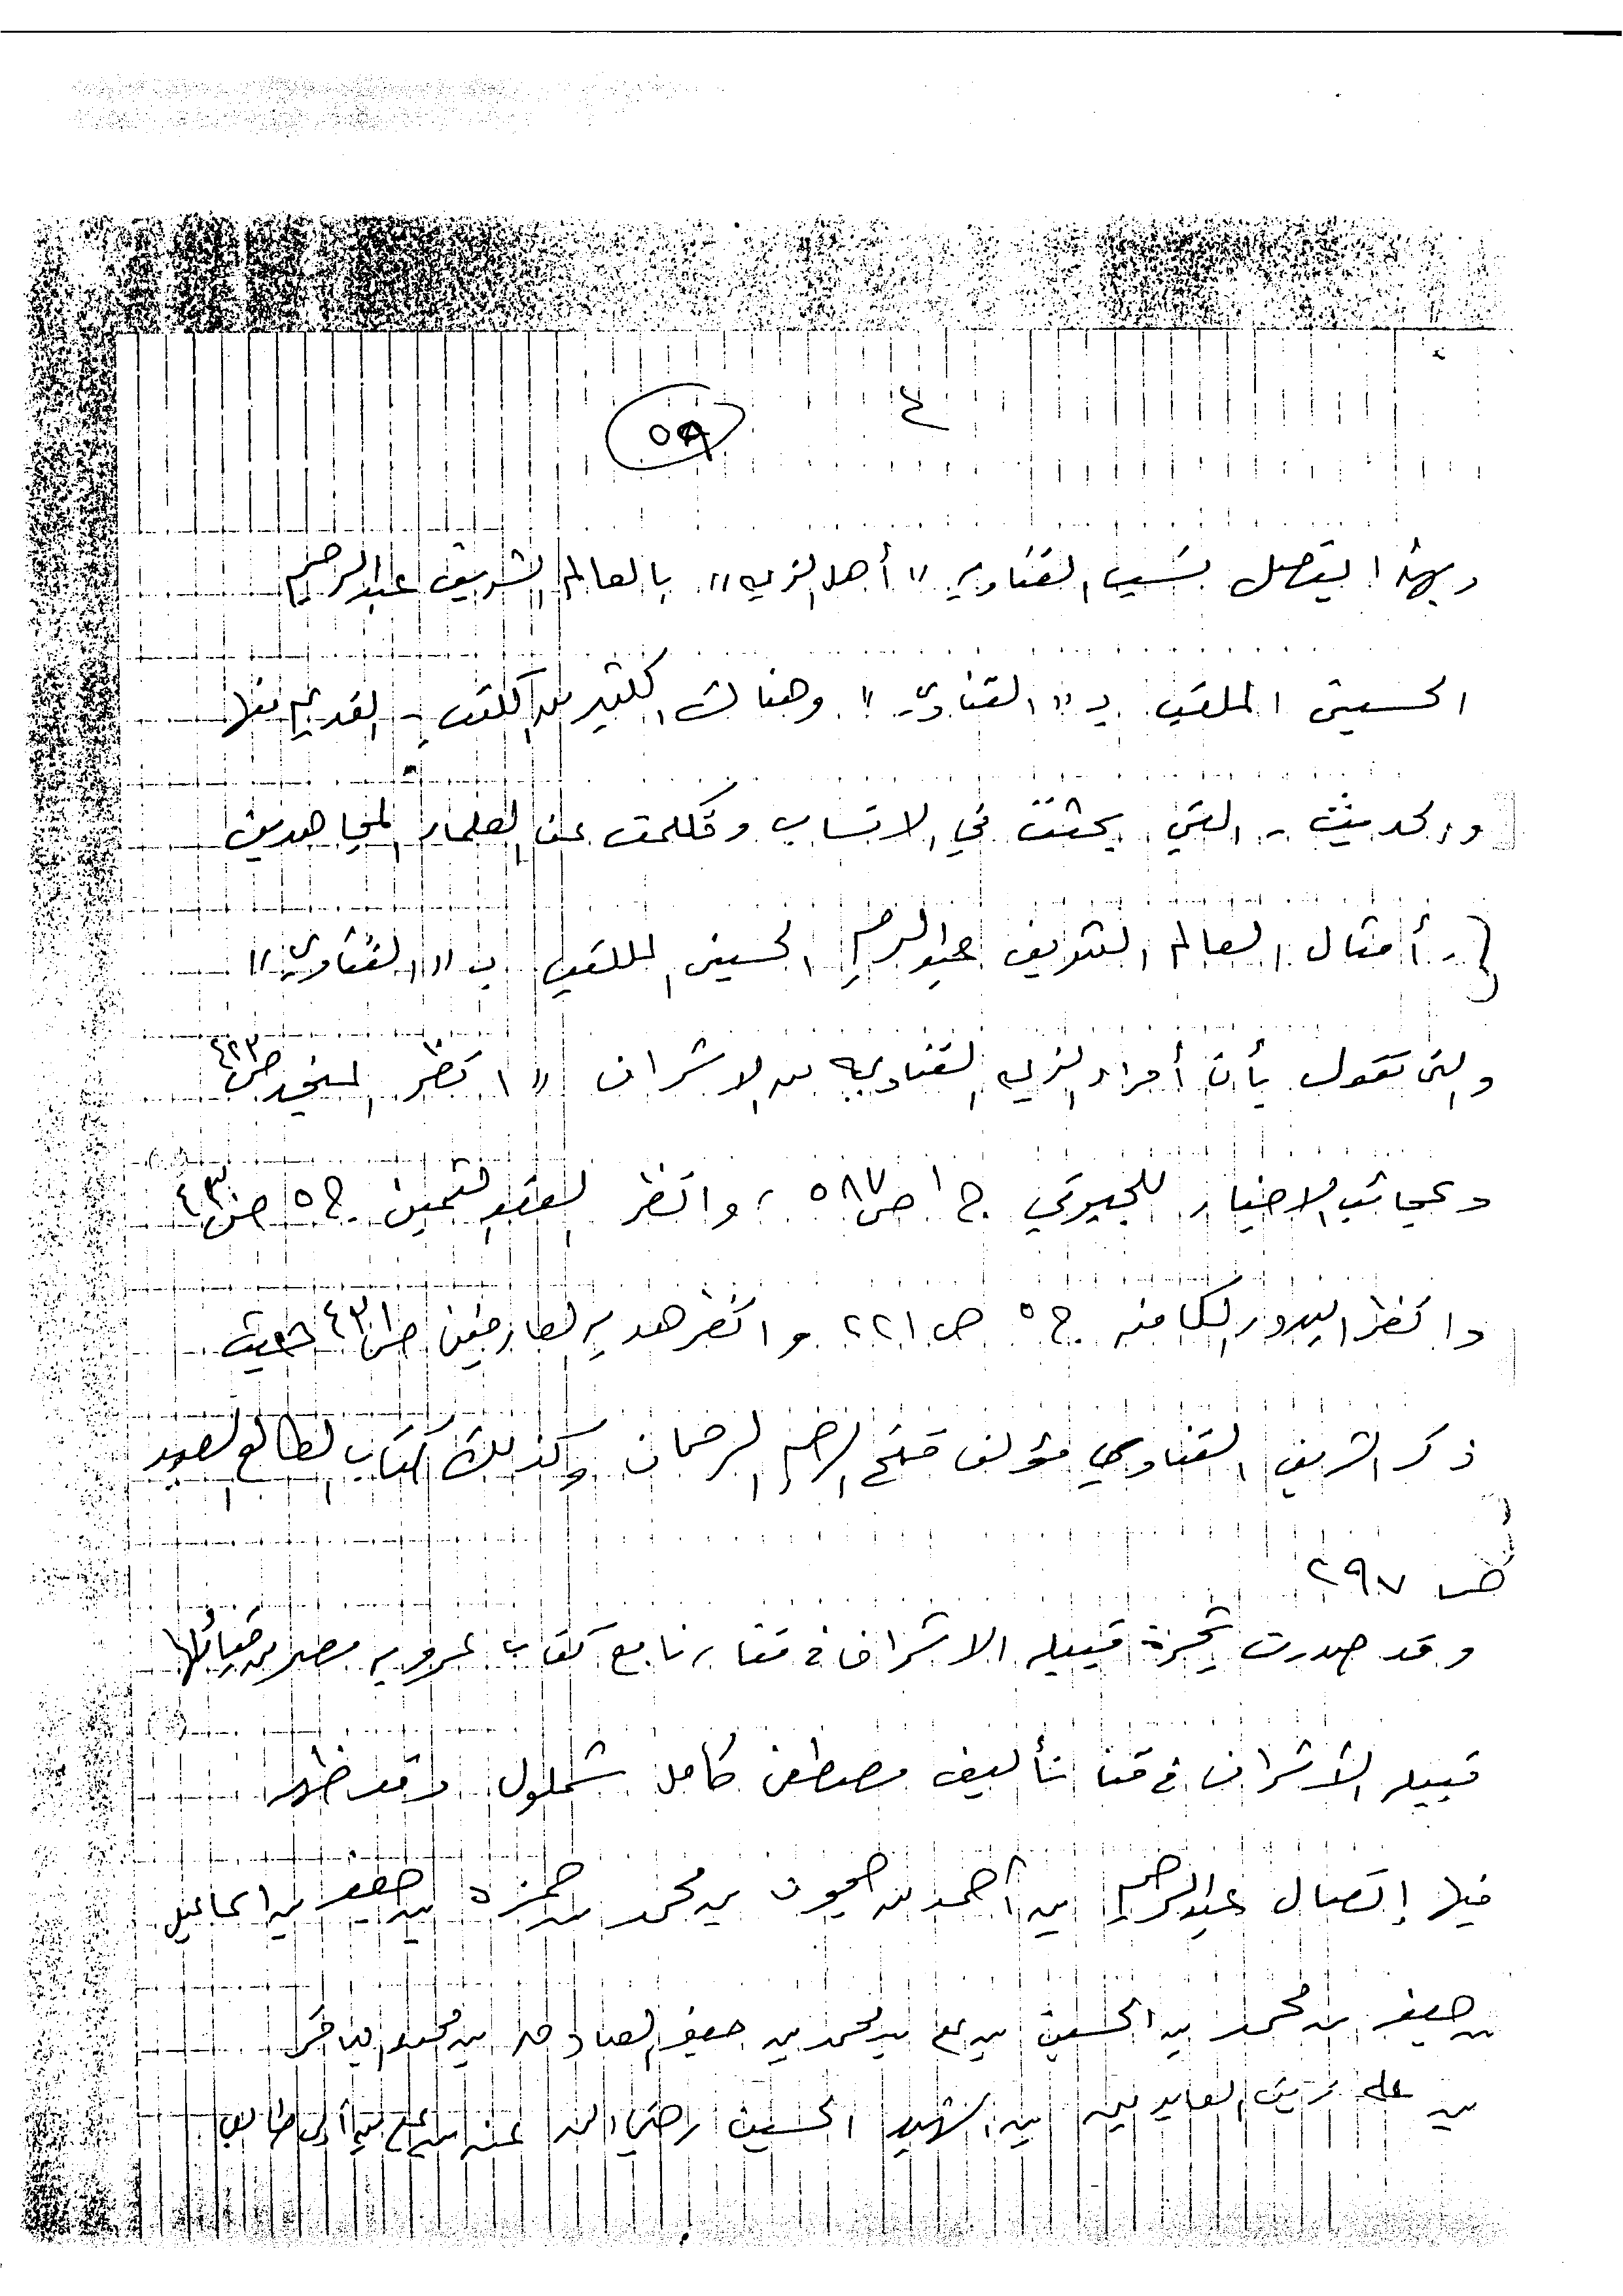 ٤
٥٩
وبهذا يتصل نسب القناويه "أهل الزيه" بالعالم الشريف عبد الرحيم
الحسيني الملقب بـ "القناوي" وهناك الكثير من الكتب - القديم منها
والحديث - التي بحثت في الانساب وتكلمت عن العلماء المجاهدين
- أمثال العالم الشريف عبد الرحيم الحسيني الملقب بـ "القناوي"
والتي تقول بأن أفراد القناويه من الاشراف "انظر المنجد ص ٤٢٣
وعجائب الاخبار للجبرتي ج ١ ص ٥٨٧ ، وانظر العقد الثمين ج ٥ ص ٤٣
وانظر البدور الكامنه ج ٥ ص ٢٢١ وانظر هديه العارفين ص ٤٣١ حيث
ذكر الشريف القناوي مؤلف فتح الرحيم الرحمان وكذلك كتاب الطالع السعيد
ص ٢٩٧
وقد صدرت شجرة قبيله الاشراف في قنا كتاب عروبه مصر من قبائلها
قبيله الأشراف في قنا تأليف مصطفى كامل شملول وقد ظهر
فيها إتصال عبد الرحيم بن أحمد بن حجون بن محمد بن حمزه بن جعفر بن اسماعيل
بن جعفر بن محمد بن الحسين بن علي بن محمد بن جعفر الصادق بن محمد الباقر
بن علي زين العابدين ابن الشهيد الحسين رضي الله عنه بن علي بن أبي طالب